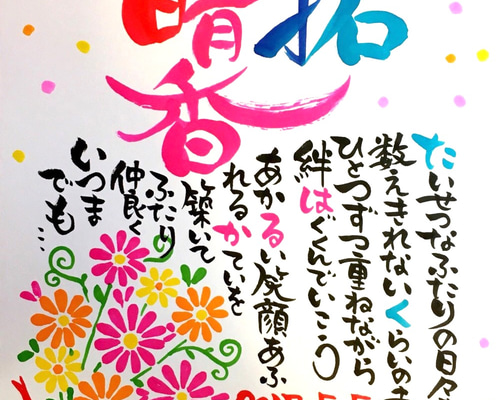 拓
晴香
たいせつなふたりの日々
数えきれないくらいの
ひとつずつ重ねながら
絆はぐくんでいこう
あかるい笑顔あふ
れるかていを
築いて
ふたり
仲良く
いつま
でも…